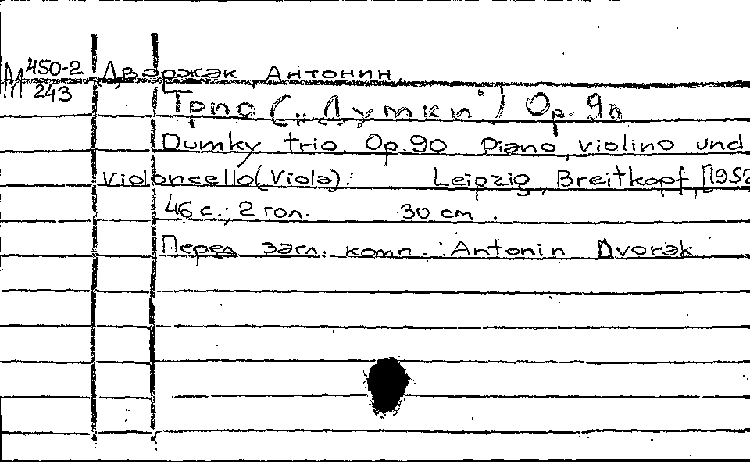 М 450-2 Дворжак, Антонин.
243 Трио („Думки“) Op. 90
Dumky trio Op.90 Piano, violino und
Violoncello(Viola). Leipzig, Breitkopf, [1952
46 с.; 2 гол. 30 cm.
Перед загл. комп.: Antonin Dvorak